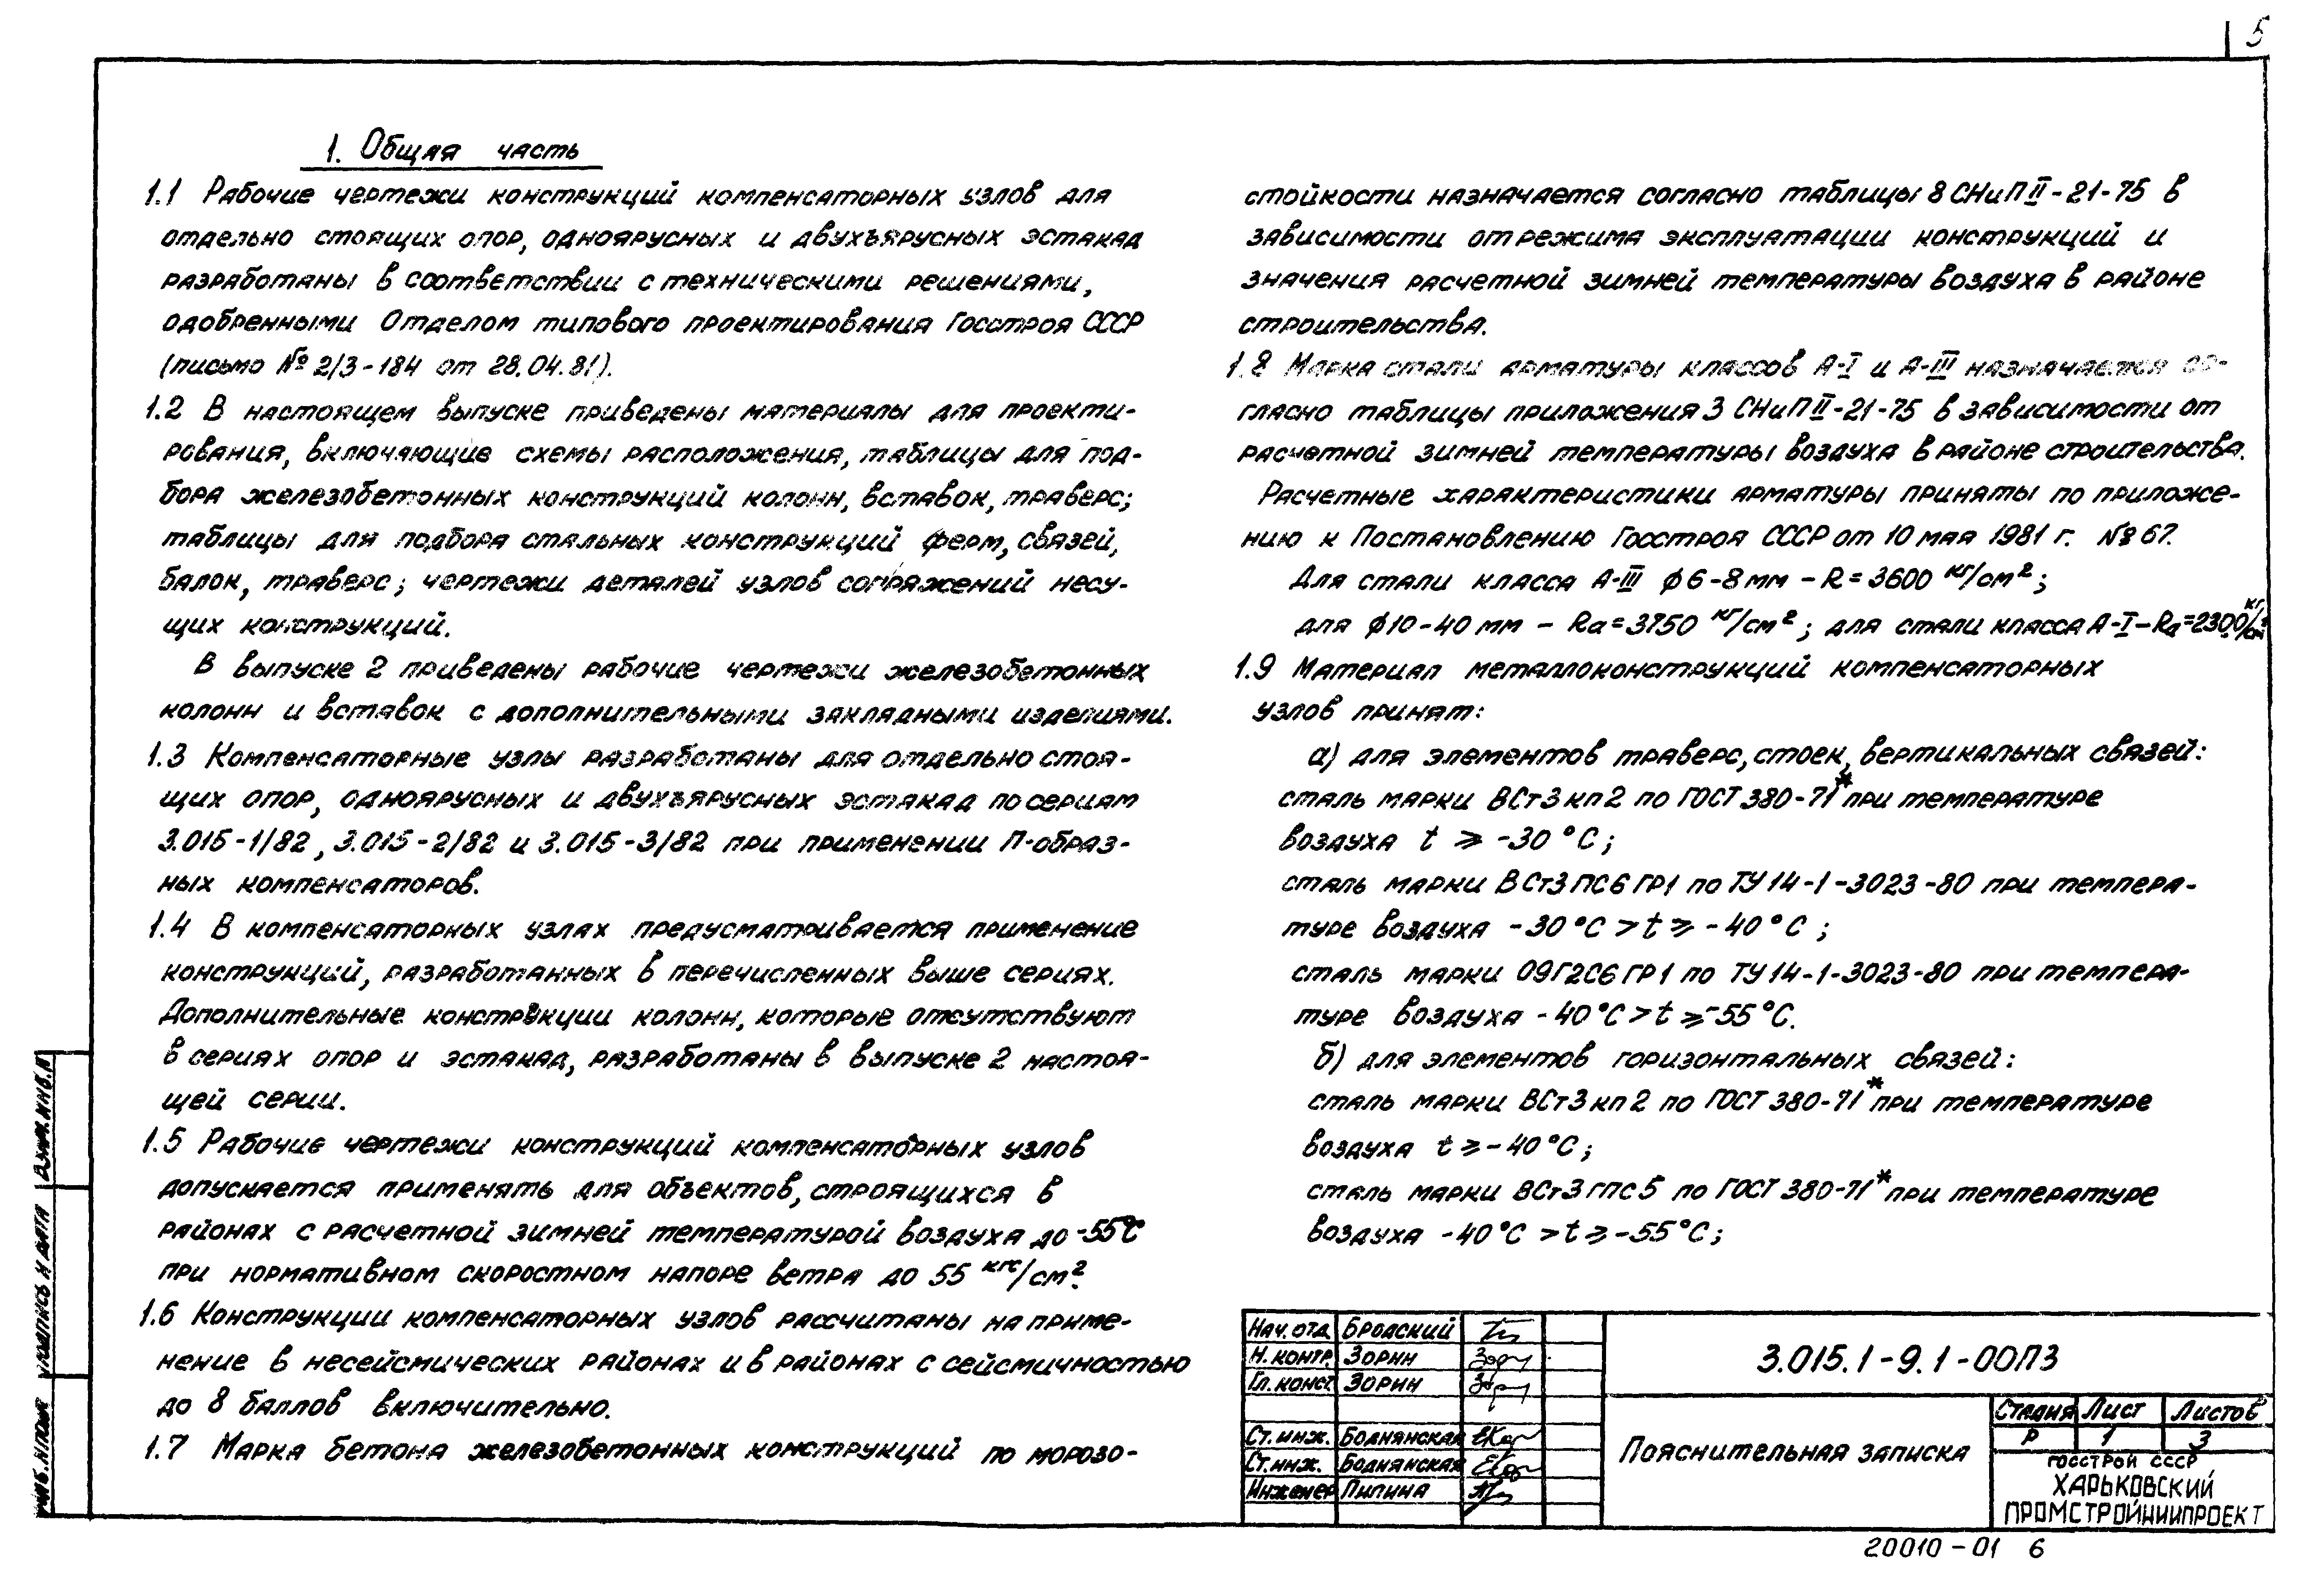 5
1. Общая часть
1.1 Рабочие чертежи конструкций компенсаторных узлов для
отдельно стоящих опор, одноярусных и двухъярусных эстакад
разработаны в соответствии с техническими решениями,
одобренными Отделом типового проектирования Госстроя СССР
(письмо № 2/3-184 от 28.04.81).
1.2 В настоящем выпуске приведены материалы для проекти-
рования, включающие схемы расположения, таблицы для под-
бора железобетонных конструкций колонн, вставок, траверс;
таблицы для подбора стальных конструкций ферм, связей,
балок, траверс; чертежи деталей узлов сопряжений несу-
щих конструкций.
В выпуске 2 приведены рабочие чертежи железобетонных
колонн и вставок с дополнительными закладными изделиями.
1.3 Компенсаторные узлы разработаны для отдельно стоя-
щих опор, одноярусных и двухъярусных эстакад по сериям
3.015-1/82, 3.015-2/82 и 3.015-3/82 при применении П-образ-
ных компенсаторов.
1.4 В компенсаторных узлах предусматривается применение
конструкций, разработанных в перечисленных выше сериях.
Дополнительные конструкции колонн, которые отсутствуют
в сериях опор и эстакад, разработаны в выпуске 2 настоя-
щей серии.
1.5 Рабочие чертежи конструкций компенсаторных узлов
допускается применять для объектов, строящихся в
районах с расчетной зимней температурой воздуха до -55°С
при нормативном скоростном напоре ветра до 55 кгс/см².
1.6 Конструкции компенсаторных узлов рассчитаны на приме-
нение в несейсмических районах и в районах с сейсмичностью
до 8 баллов включительно.
1.7 Марка бетона железобетонных конструкций по морозо-
стойкости назначается согласно таблицы 8 СНиП II-21-75 в
зависимости от режима эксплуатации конструкций и
значения расчетной зимней температуры воздуха в районе
строительства.
1.8 Марка стали арматуры классов А-I и А-III назначается со-
гласно таблицы приложения 3 СНиП II-21-75 в зависимости от
расчетной зимней температуры воздуха в районе строительства.
Расчетные характеристики арматуры приняты по приложе-
нию к Постановлению Госстроя СССР от 10 мая 1981 г. № 67.
Для стали класса А-III ϕ6-8 мм - R = 3600 кг/см²;
для ϕ10-40 мм - Ra = 3750 кг/см²; для стали класса А-I - Ra = 2300 кг/см²
1.9 Материал металлоконструкций компенсаторных
узлов принят:
а) для элементов траверс, стоек, вертикальных связей:
сталь марки ВСт3кп2 по ГОСТ 380-71* при температуре
воздуха t ⩾ -30°С;
сталь марки ВСт3ПС6ГР1 по ТУ14-1-3023-80 при темпера-
туре воздуха -30°С > t ⩾ -40°С;
сталь марки 09Г2С6ГР1 по ТУ14-1-3023-80 при темпера-
туре воздуха -40°С > t ⩾ -55°С.
б) для элементов горизонтальных связей:
сталь марки ВСт3кп2 по ГОСТ 380-71* при температуре
воздуха t ⩾ -40°С;
сталь марки ВСт3Гпс5 по ГОСТ 380-71* при температуре
воздуха -40°С > t ⩾ -55°С;
Инв.№ подл. Подпись и дата Взам.инв.№
Нач.отд. Бродский
Н.контр. Зорин
Гл.конст. Зорин
Ст.инж. Боднянская
Ст.инж. Боднянская
Инженер Пилина
3.015.1-9.1-00ПЗ
Пояснительная записка
Стадия Лист Листов
Р 1 3
ГОССТРОЙ СССР
ХАРЬКОВСКИЙ
ПРОМСТРОЙНИИПРОЕКТ
20010-01 6